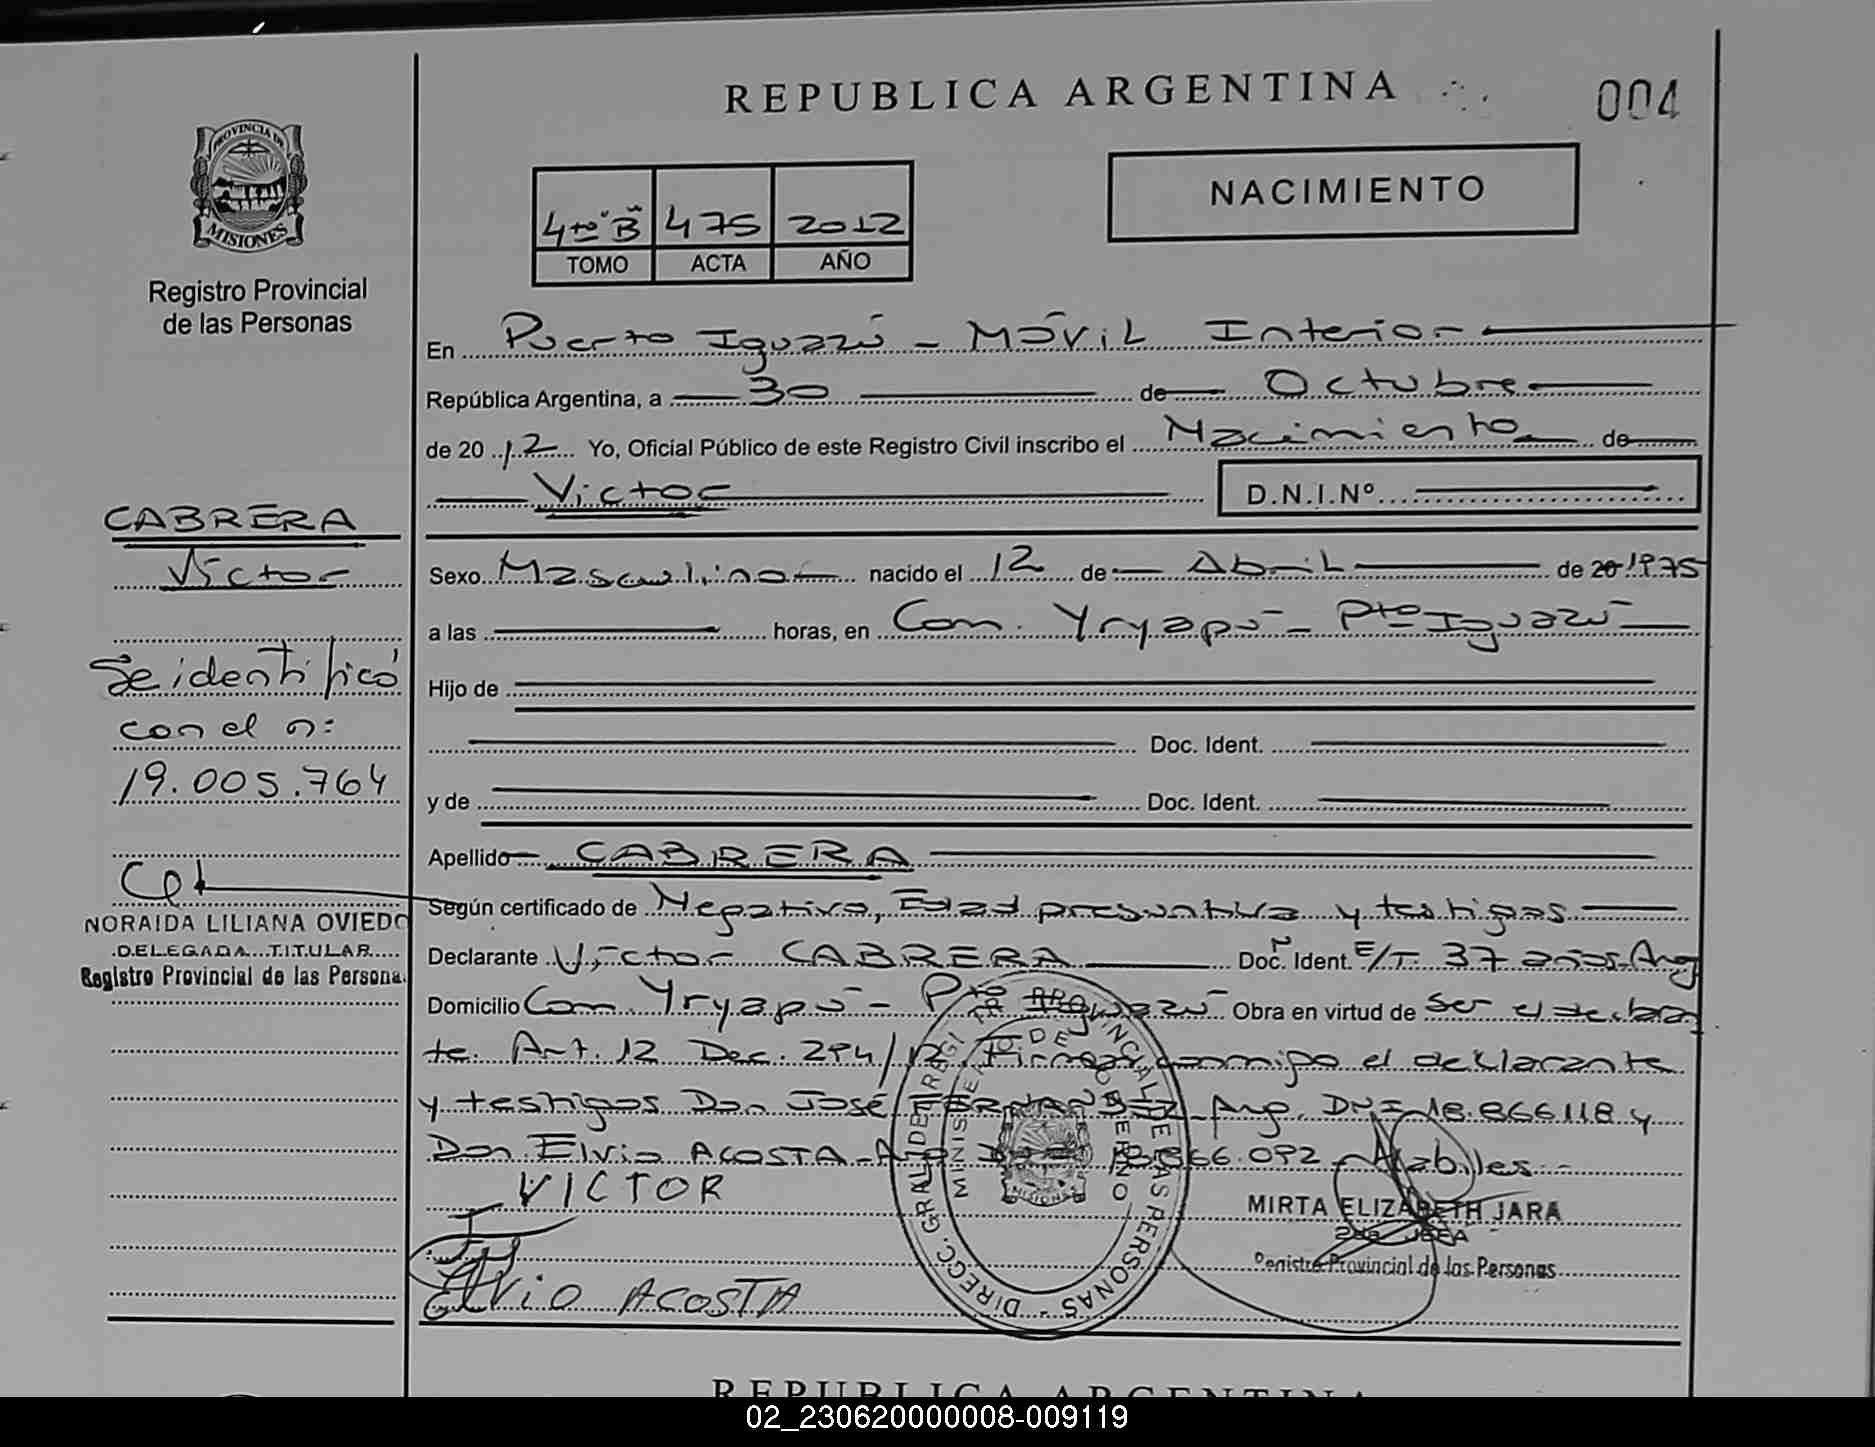 REPUBLICA ARGENTINA
004
NACIMIENTO
4to "B" 475 2012
TOMO ACTA AÑO
PROVINCIA DE
MISIONES
Registro Provincial
de las Personas
En Puerto Iguazú - MÓViL Interior
República Argentina, a 30 de Octubre
de 2012 Yo, Oficial Público de este Registro Civil inscribo el Nacimiento de
Victor D.N.I.Nº
CABRERA
Victor
Se identificó
con el n:
19.005.764
NORAIDA LILIANA OVIEDO
DELEGADA TITULAR
Registro Provincial de las Persona
Sexo Masculino nacido el 12 de Abril de 20 1975
a las horas, en Com. Yryapú - Pto Iguazú
Hijo de
Doc. Ident.
y de Doc. Ident.
Apellido CABRERA
Según certificado de Negativo, Edad presuntiva y testigos
Declarante Victor CABRERA Doc. Ident. E/T 37 años Arg
Domicilio Com. Yryapú - Pto Iguazú Obra en virtud de ser el declaran
te. Art. 12 Dec. 294/12 Firman conmigo el declarante
y testigos Don José FERNANDEZ Arg. DNI 18.866.118 y
Don Elvio ACOSTA - 866.092 - Habiles -
VICTOR
ElViO ACOSTA
DIRECC. GRAL. DEL REGISTRO PROVINCIAL DE LAS PERSONAS
MINISTERIO DE GOBIERNO
MISIONES
MIRTA ELIZABETH JARA
2da JEFA
Registro Provincial de las Personas
REPUBLICA ARGENTINA
02_230620000008-009119